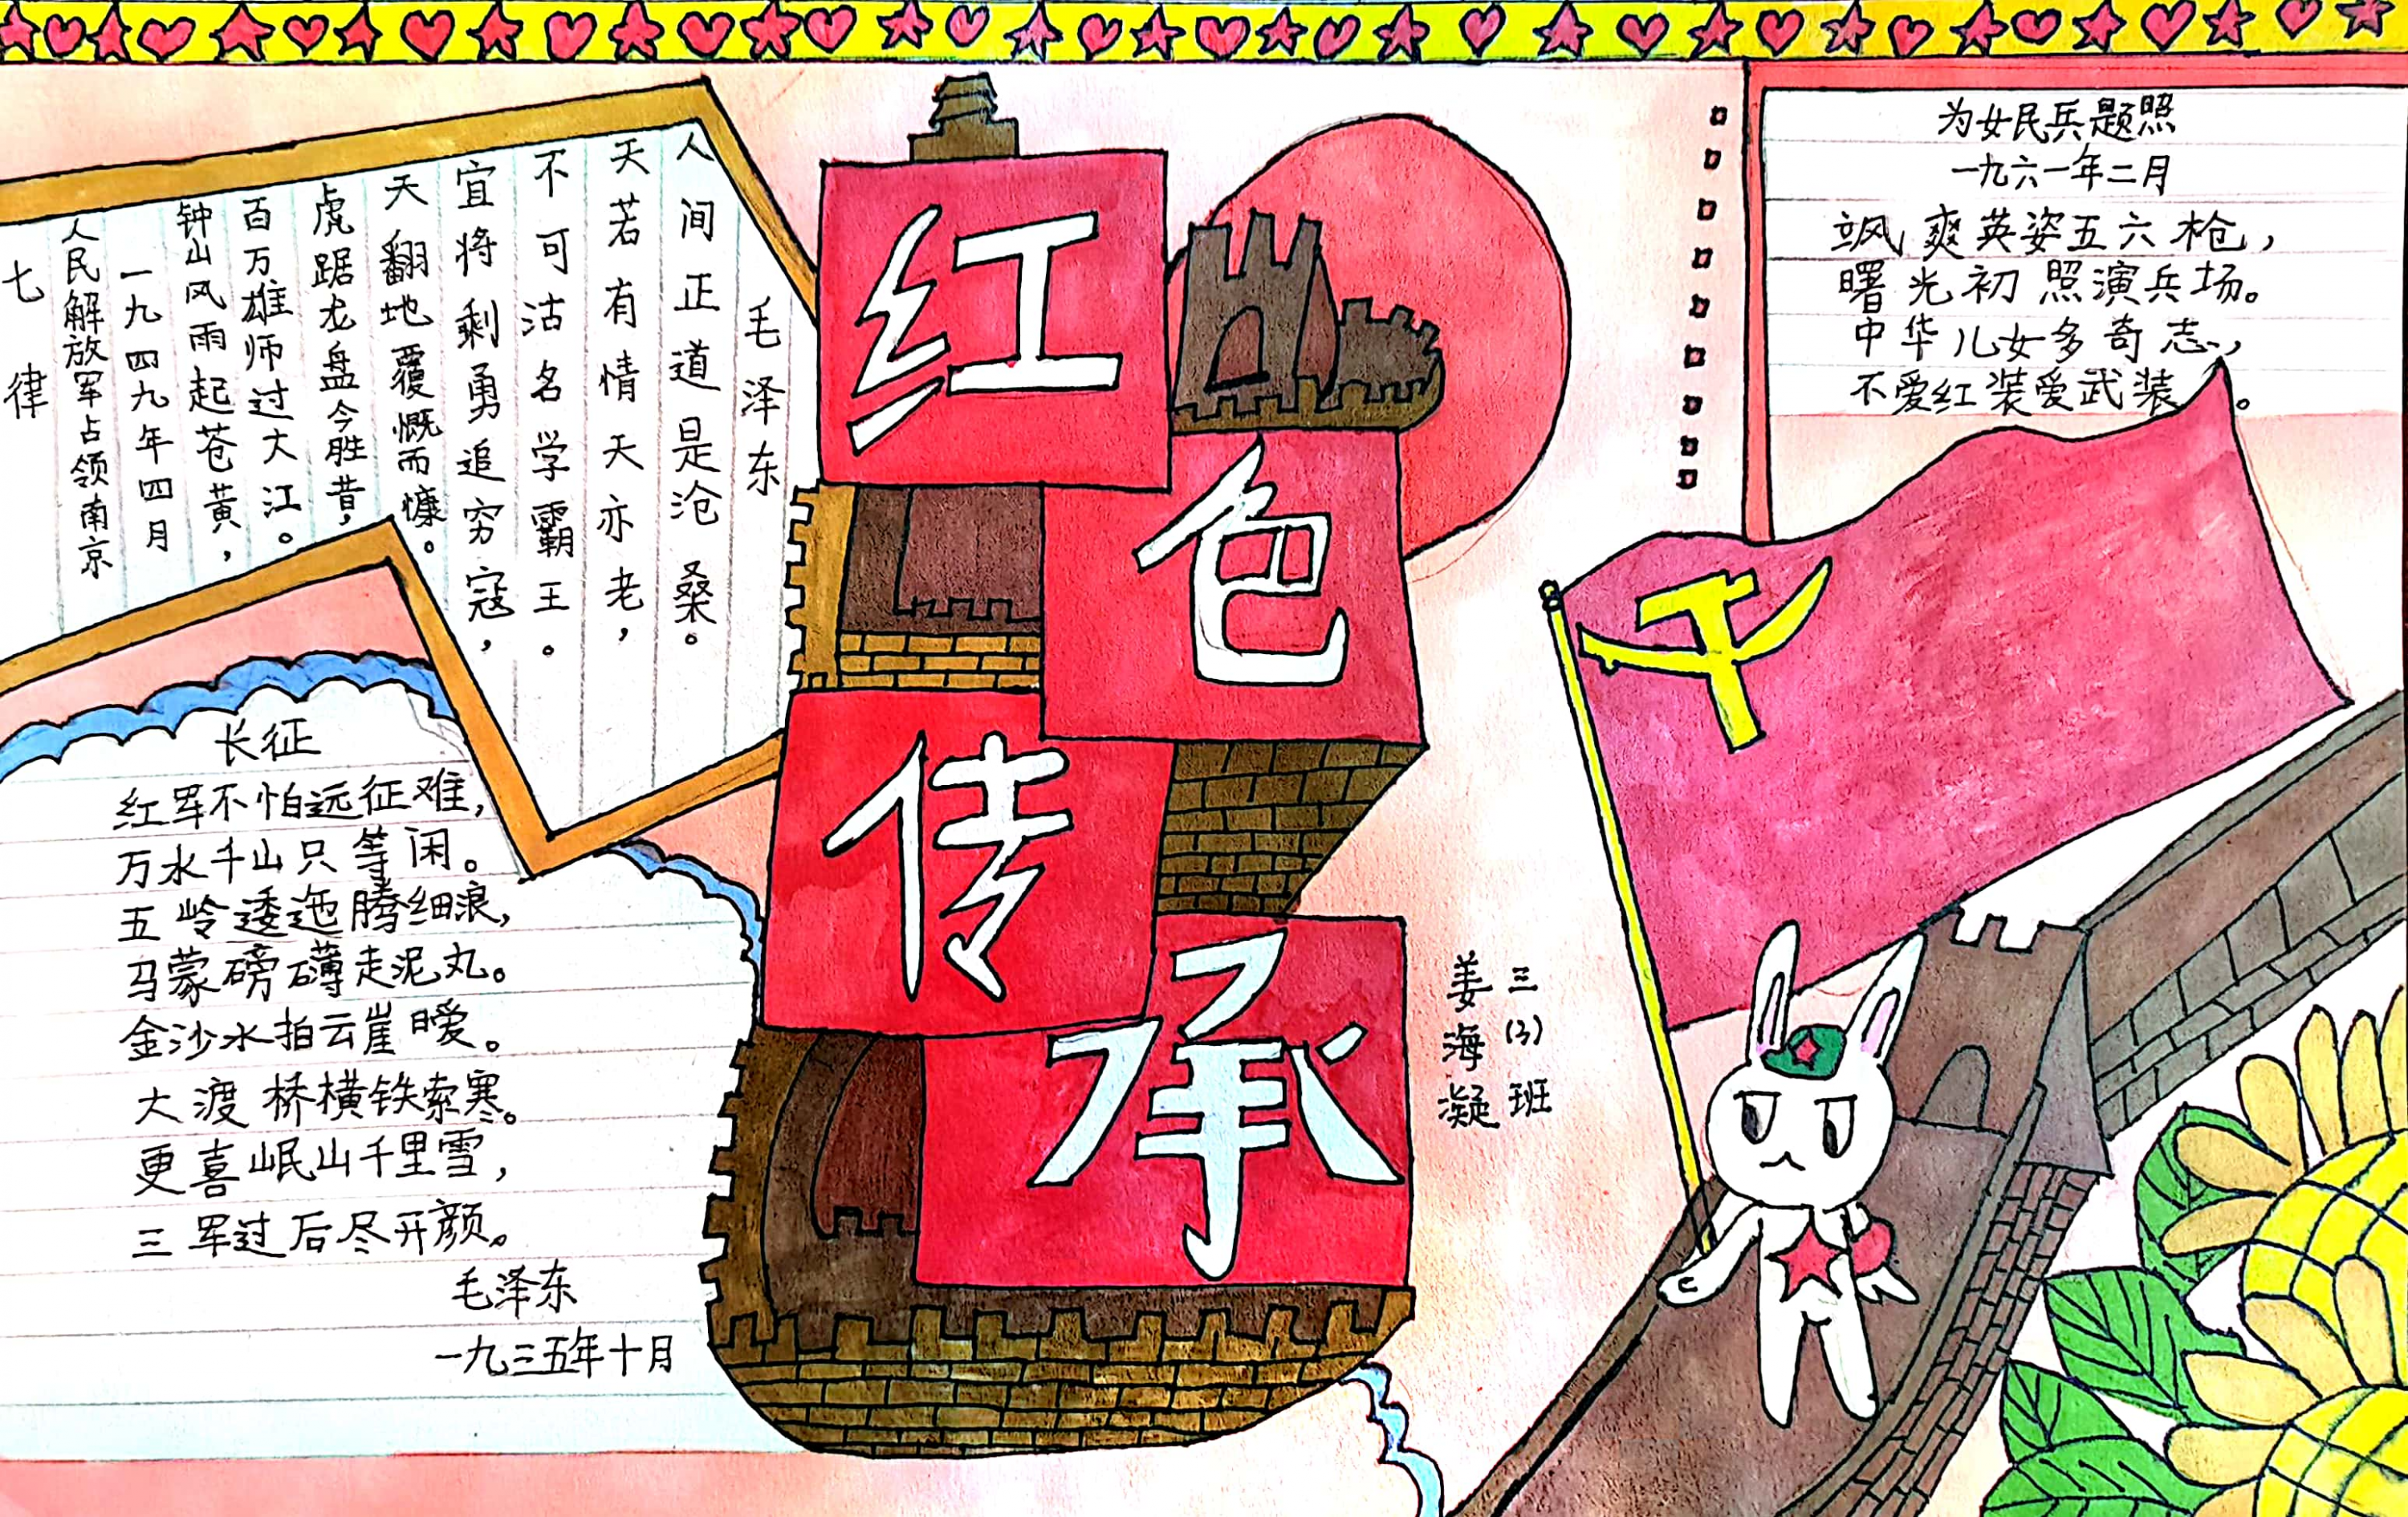 红色传承
七律
人民解放军占领南京
一九四九年四月
钟山风雨起苍黄，
百万雄师过大江。
虎踞龙盘今胜昔，
天翻地覆慨而慷。
宜将剩勇追穷寇，
不可沽名学霸王。
天若有情天亦老，
人间正道是沧桑。
毛泽东
长征
红军不怕远征难，
万水千山只等闲。
五岭逶迤腾细浪，
马蒙磅礴走泥丸。
金沙水拍云崖暧。
大渡桥横铁索寒。
更喜岷山千里雪，
三军过后尽开颜。
毛泽东
一九三五年十月
为女民兵题照
一九六一年二月
飒爽英姿五六枪，
曙光初照演兵场。
中华儿女多奇志，
不爱红装爱武装。
三(3)班
姜海凝